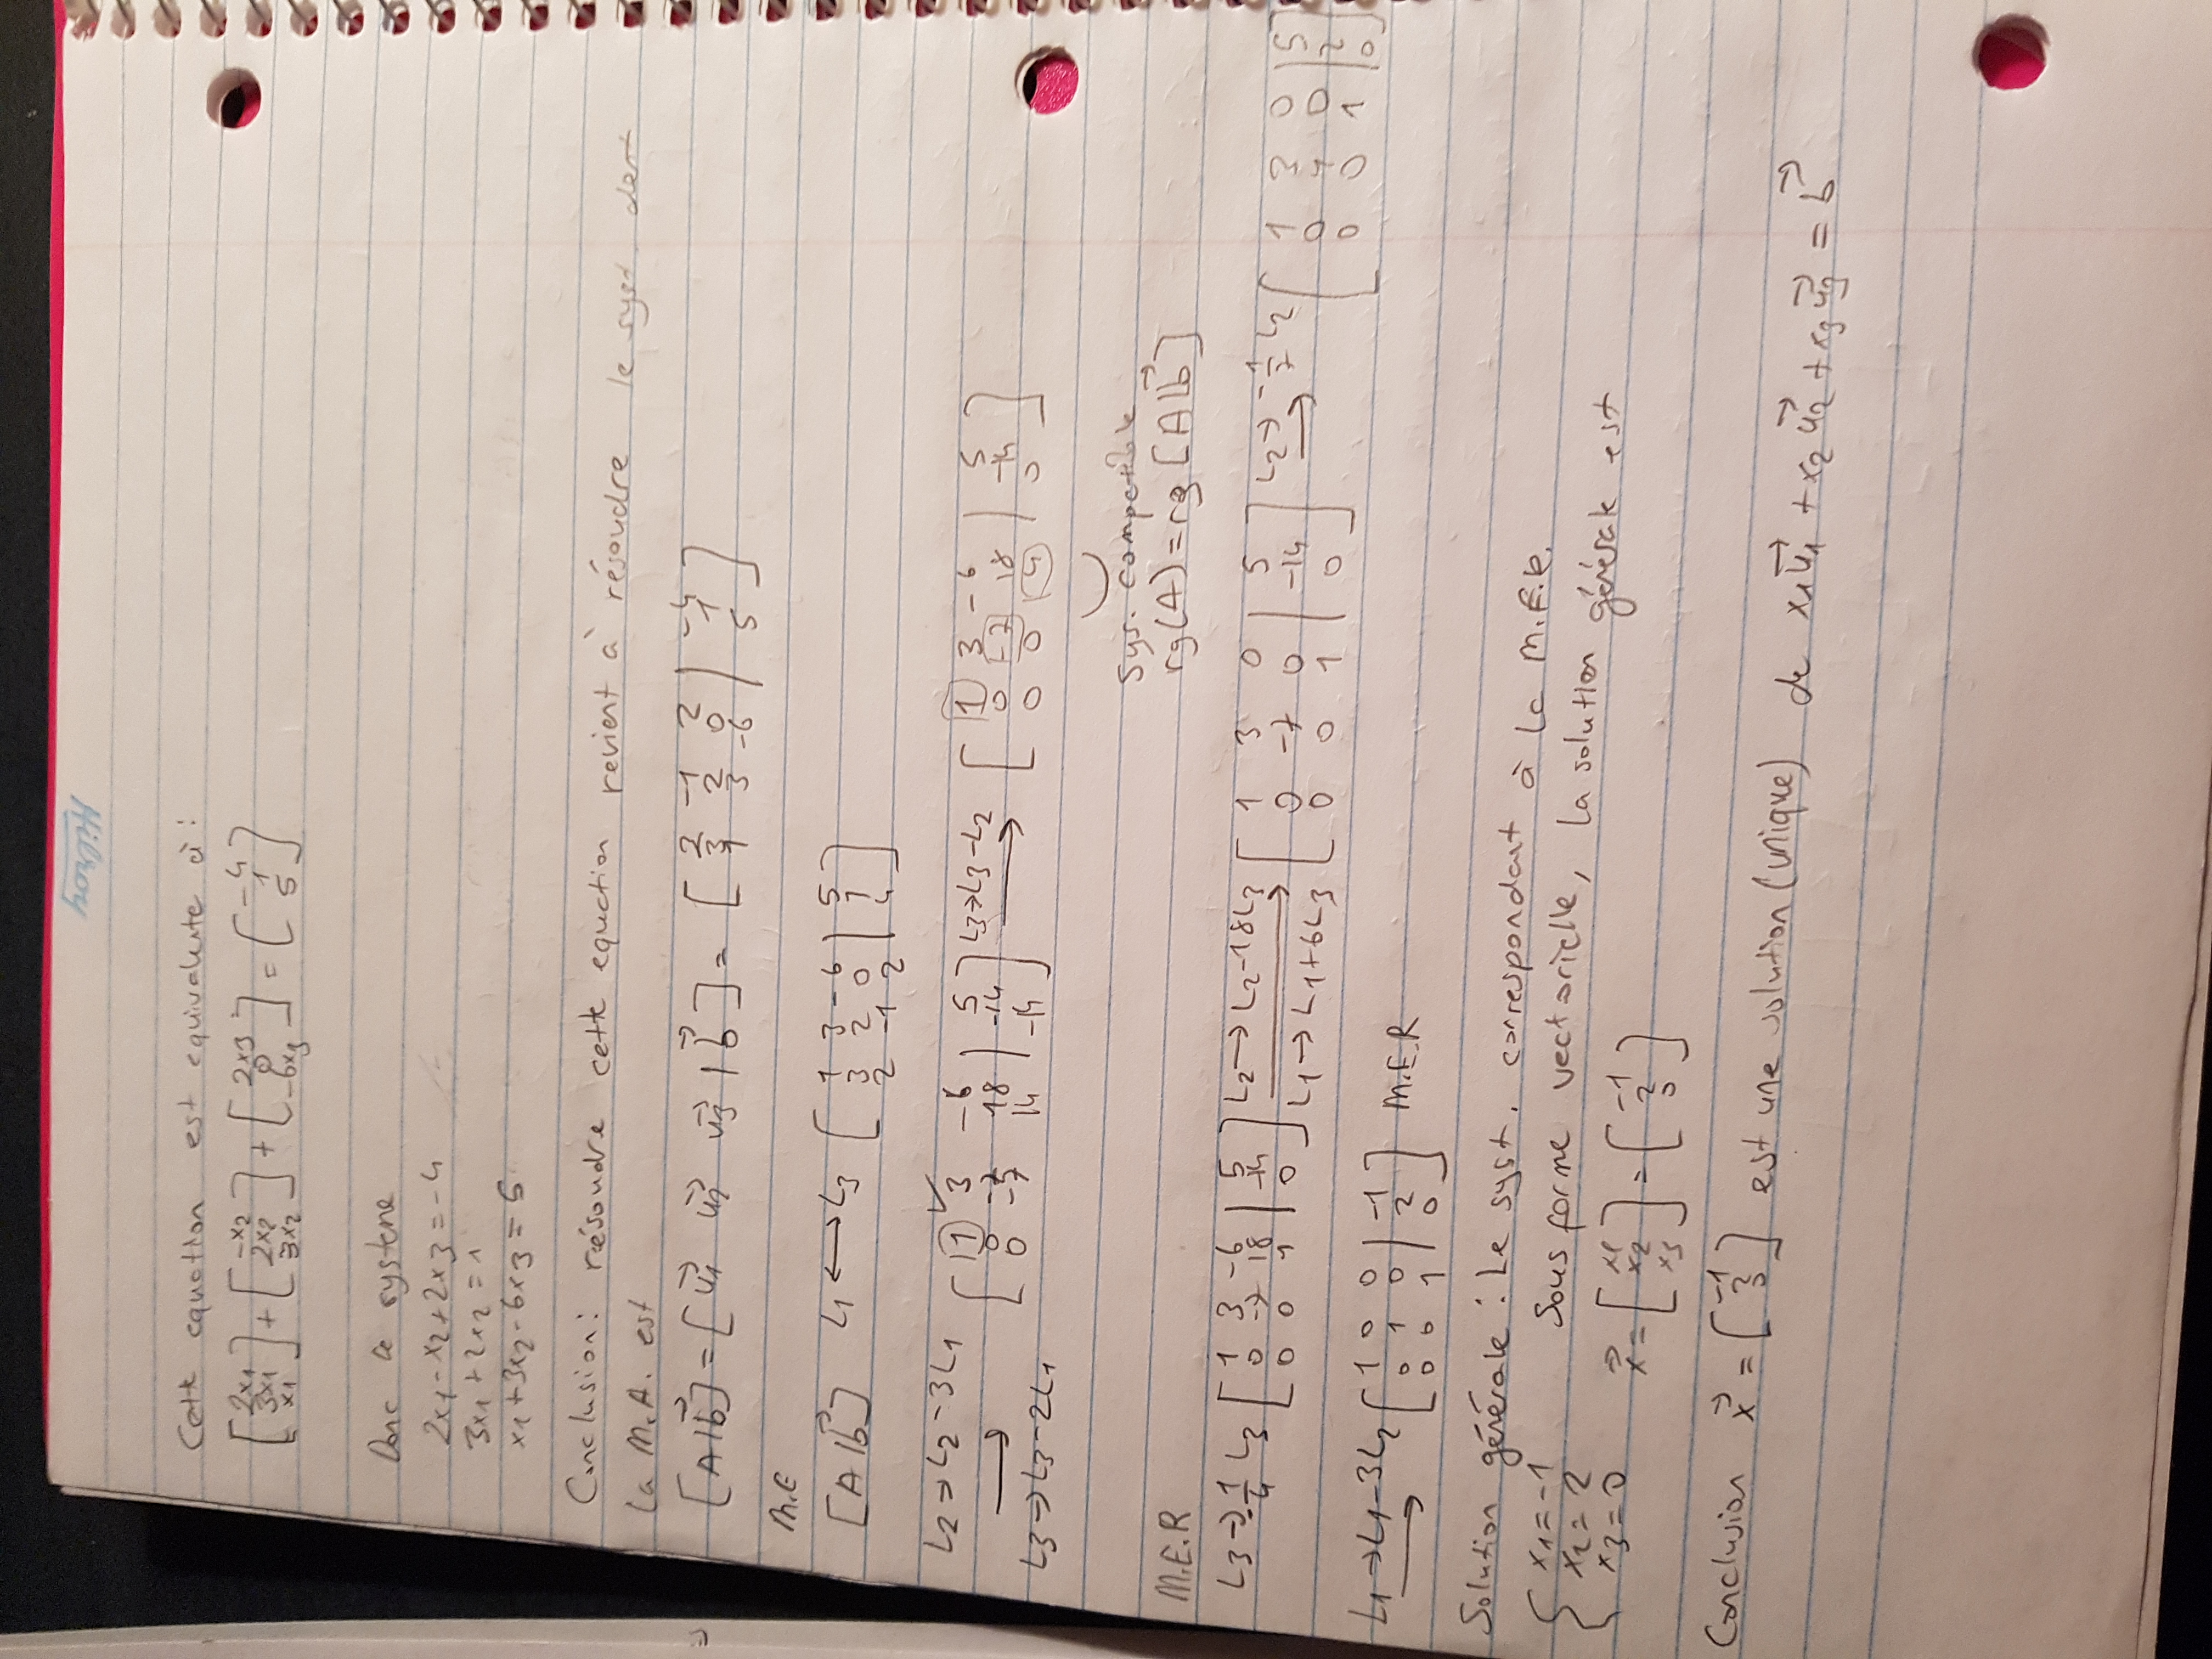 Hilroy
Cette equation est equivalente à :
[2x1 3x1 x1] + [-x2 2x2 3x2] + [2x3 0 -6x3] = [-4 1 5]
Donc ce systeme
2x1 - x2 + 2x3 = -4
3x1 + 2x2 = 1
x1 + 3x2 - 6x3 = 5
Conclusion : résoudre cette equation revient à résoudre le syst dont
la M.A. est
[A|b⃗] = [u⃗1 u⃗2 u⃗3 | b⃗] = [2 -1 2 | -4
3 2 0 | 1
1 3 -6 | 5]
M.E
[A|b⃗] L1 ⟷ L3 [1 3 -6 | 5
3 2 0 | 1
2 -1 2 | -4]
L2 → L2 - 3L1
⟶
L3 → L3 - 2L1
[1 3 -6 | 5
0 -7 18 | -14
0 -7 14 | -14]
L3 → L3 - L2
⟶
[1 3 -6 | 5
0 -7 18 | -14
0 0 -4 | 0]
Sys. compatible
rg(A) = rg[A|b⃗]
M.E.R
L3 → -1/4 L3 [1 3 -6 | 5
0 -7 18 | -14
0 0 1 | 0]
L2 → L2 - 18L3
⟶
L1 → L1 + 6L3
[1 3 0 | 5
0 -7 0 | -14
0 0 1 | 0]
L2 → -1/7 L2
⟶
[1 3 0 | 5
0 1 0 | 2
0 0 1 | 0]
L1 → L1 - 3L2
⟶
[1 0 0 | -1
0 1 0 | 2
0 0 1 | 0] M.E.R
Solution générale : Le syst. correspondant à la M.E.R.
{ x1 = -1
x2 = 2
x3 = 0
Sous forme vectorielle, la solution générale est
x⃗ = [x1 x2 x3] = [-1 2 0]
Conclusion x⃗ = [-1 2 0] est une solution (unique) de x1u⃗1 + x2u⃗2 + x3u⃗3 = b⃗